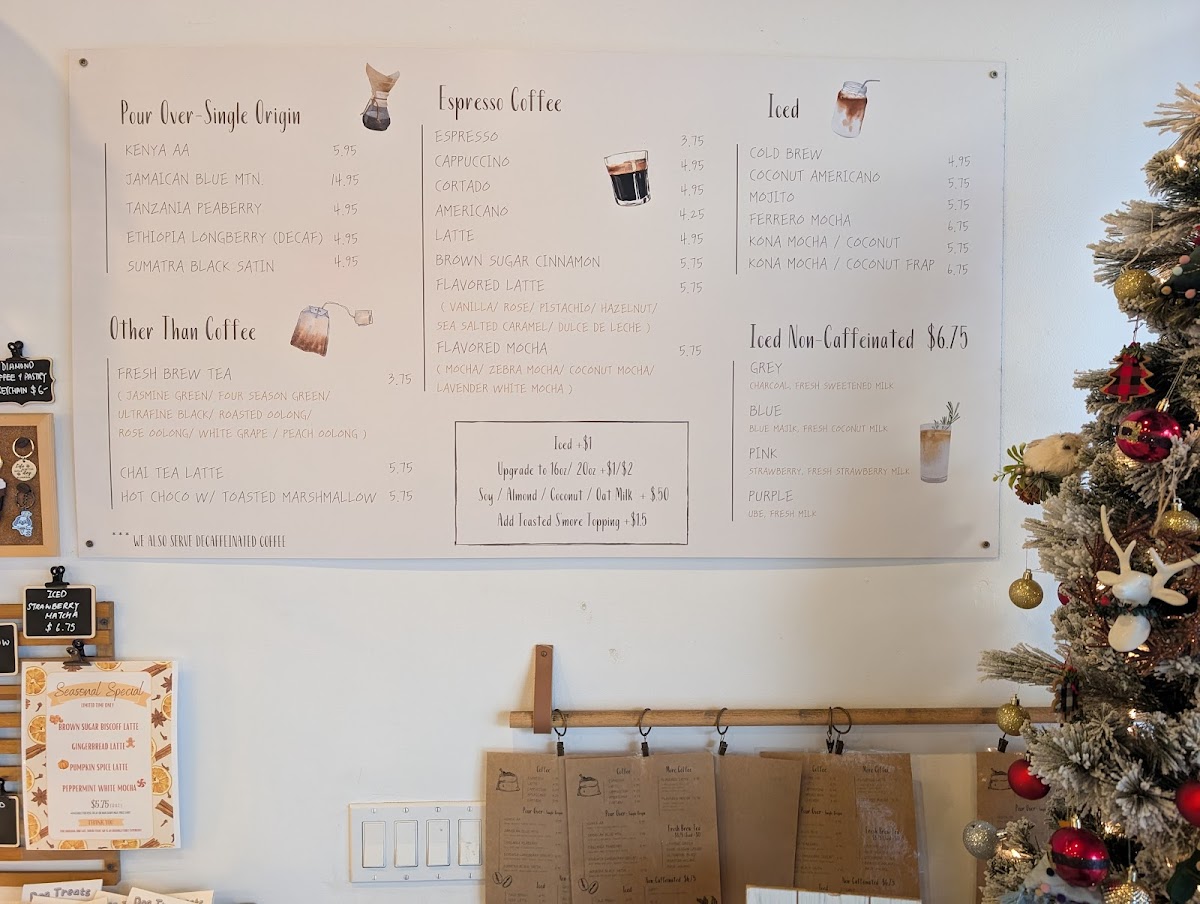 Pour Over-Single Origin
KENYA AA 5.95
JAMAICAN BLUE MTN. 14.95
TANZANIA PEABERRY 4.95
ETHIOPIA LONGBERRY (DECAF) 4.95
SUMATRA BLACK SATIN 4.95
Other Than Coffee
FRESH BREW TEA 3.75
( JASMINE GREEN/ FOUR SEASON GREEN/
ULTRAFINE BLACK/ ROASTED OOLONG/
ROSE OOLONG/ WHITE GRAPE / PEACH OOLONG )
CHAI TEA LATTE 5.75
HOT CHOCO W/ TOASTED MARSHMALLOW 5.75
*** WE ALSO SERVE DECAFFEINATED COFFEE
Espresso Coffee
ESPRESSO 3.75
CAPPUCCINO 4.95
CORTADO 4.95
AMERICANO 4.25
LATTE 4.95
BROWN SUGAR CINNAMON 5.75
FLAVORED LATTE 5.75
( VANILLA/ ROSE/ PISTACHIO/ HAZELNUT/
SEA SALTED CARAMEL/ DULCE DE LECHE )
FLAVORED MOCHA 5.75
( MOCHA/ ZEBRA MOCHA/ COCONUT MOCHA/
LAVENDER WHITE MOCHA )
Iced +$1
Upgrade to 16oz/ 20oz +$1/$2
Soy / Almond / Coconut / Oat Milk + $.50
Add Toasted S'more Topping +$1.5
Iced
COLD BREW 4.95
COCONUT AMERICANO 5.75
MOJITO 5.75
FERRERO MOCHA 6.75
KONA MOCHA / COCONUT 5.75
KONA MOCHA / COCONUT FRAP 6.75
Iced Non-Caffeinated $6.75
GREY
CHARCOAL, FRESH SWEETENED MILK
BLUE
BLUE MAJIK, FRESH COCONUT MILK
PINK
STRAWBERRY, FRESH STRAWBERRY MILK
PURPLE
UBE, FRESH MILK
DIAMOND
PASTRY
$6-
ICED
STRAWBERRY
MATCHA
$6.75
Seasonal Special
LIMITED TIME ONLY
BROWN SUGAR BISCOFF LATTE
GINGERBREAD LATTE
PUMPKIN SPICE LATTE
PEPPERMINT WHITE MOCHA
$5.75
Dog Treats
Dog Treats
Coffee
Pour Over
Iced
Coffee
More Coffee
Pour Over
Fresh Brew Tea
Iced
Non-Caffeinated
Coffee
More Coffee
Pour Over
Fresh Brew Tea
Iced
Non-Caffeinated